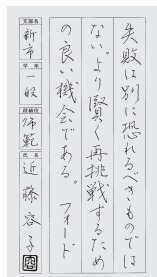 失敗は別に恐れるべきものでは
ない。より賢く再挑戦するため
の良い機会である。フォード
支部名
新市
学年
一般
段級位
師範
氏名
近藤容子